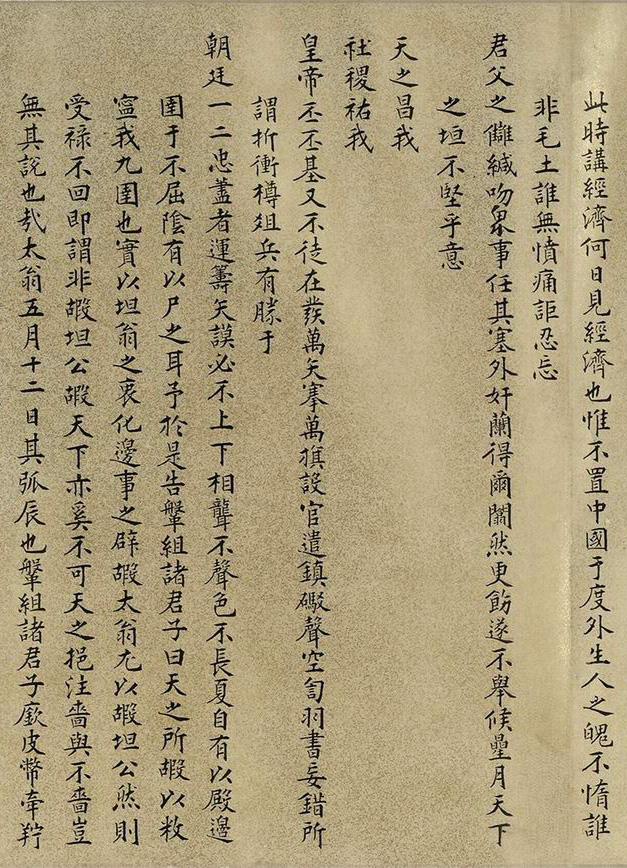 此時講經濟何日見經濟也惟不置中國于度外生人之魄不惰誰
非毛土誰無憤痛詎忍忘
君父之讎緘吻泉事任其塞外奸蘭得爾闌然更飭遂不舉候壘月天下
之垣不堅乎意
天之昌我
社稷祐我
皇帝丕丕基又不徒在發萬矢搴萬旗設官遣鎮礮聲空訇羽書妄錯所
謂折衝樽俎兵有勝于
朝廷一二忠藎者運籌矢謨必不上下相聾不聲色不長夏自有以殿邊
圉于不屈陰有以尸之耳予於是告鞶組諸君子曰天之所嘏以敉
寧我九圉也實以坦翁之衷化邊事之辟嘏太翁尤以嘏坦公然則
受祿不回即謂非嘏坦公嘏天下亦奚不可天之挹注嗇與不嗇豈
無其說也哉太翁五月十二日其弧辰也鞶組諸君子廞皮幣牽羜